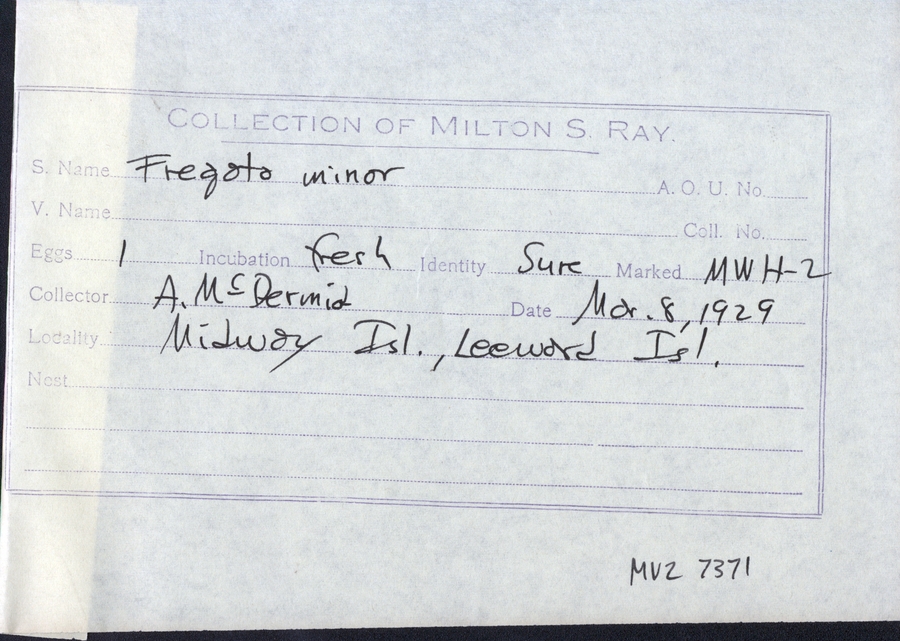 COLLECTION OF MILTON S. RAY.
S. Name Fregata minor A. O. U. No.
V. Name Coll. No.
Eggs 1 Incubation fresh Identity Sure Marked MWH-2
Collector A. McDermid Date Mar. 8, 1929
Locality Midway Isl., Leeward Isl.
Nest
MVZ 7371